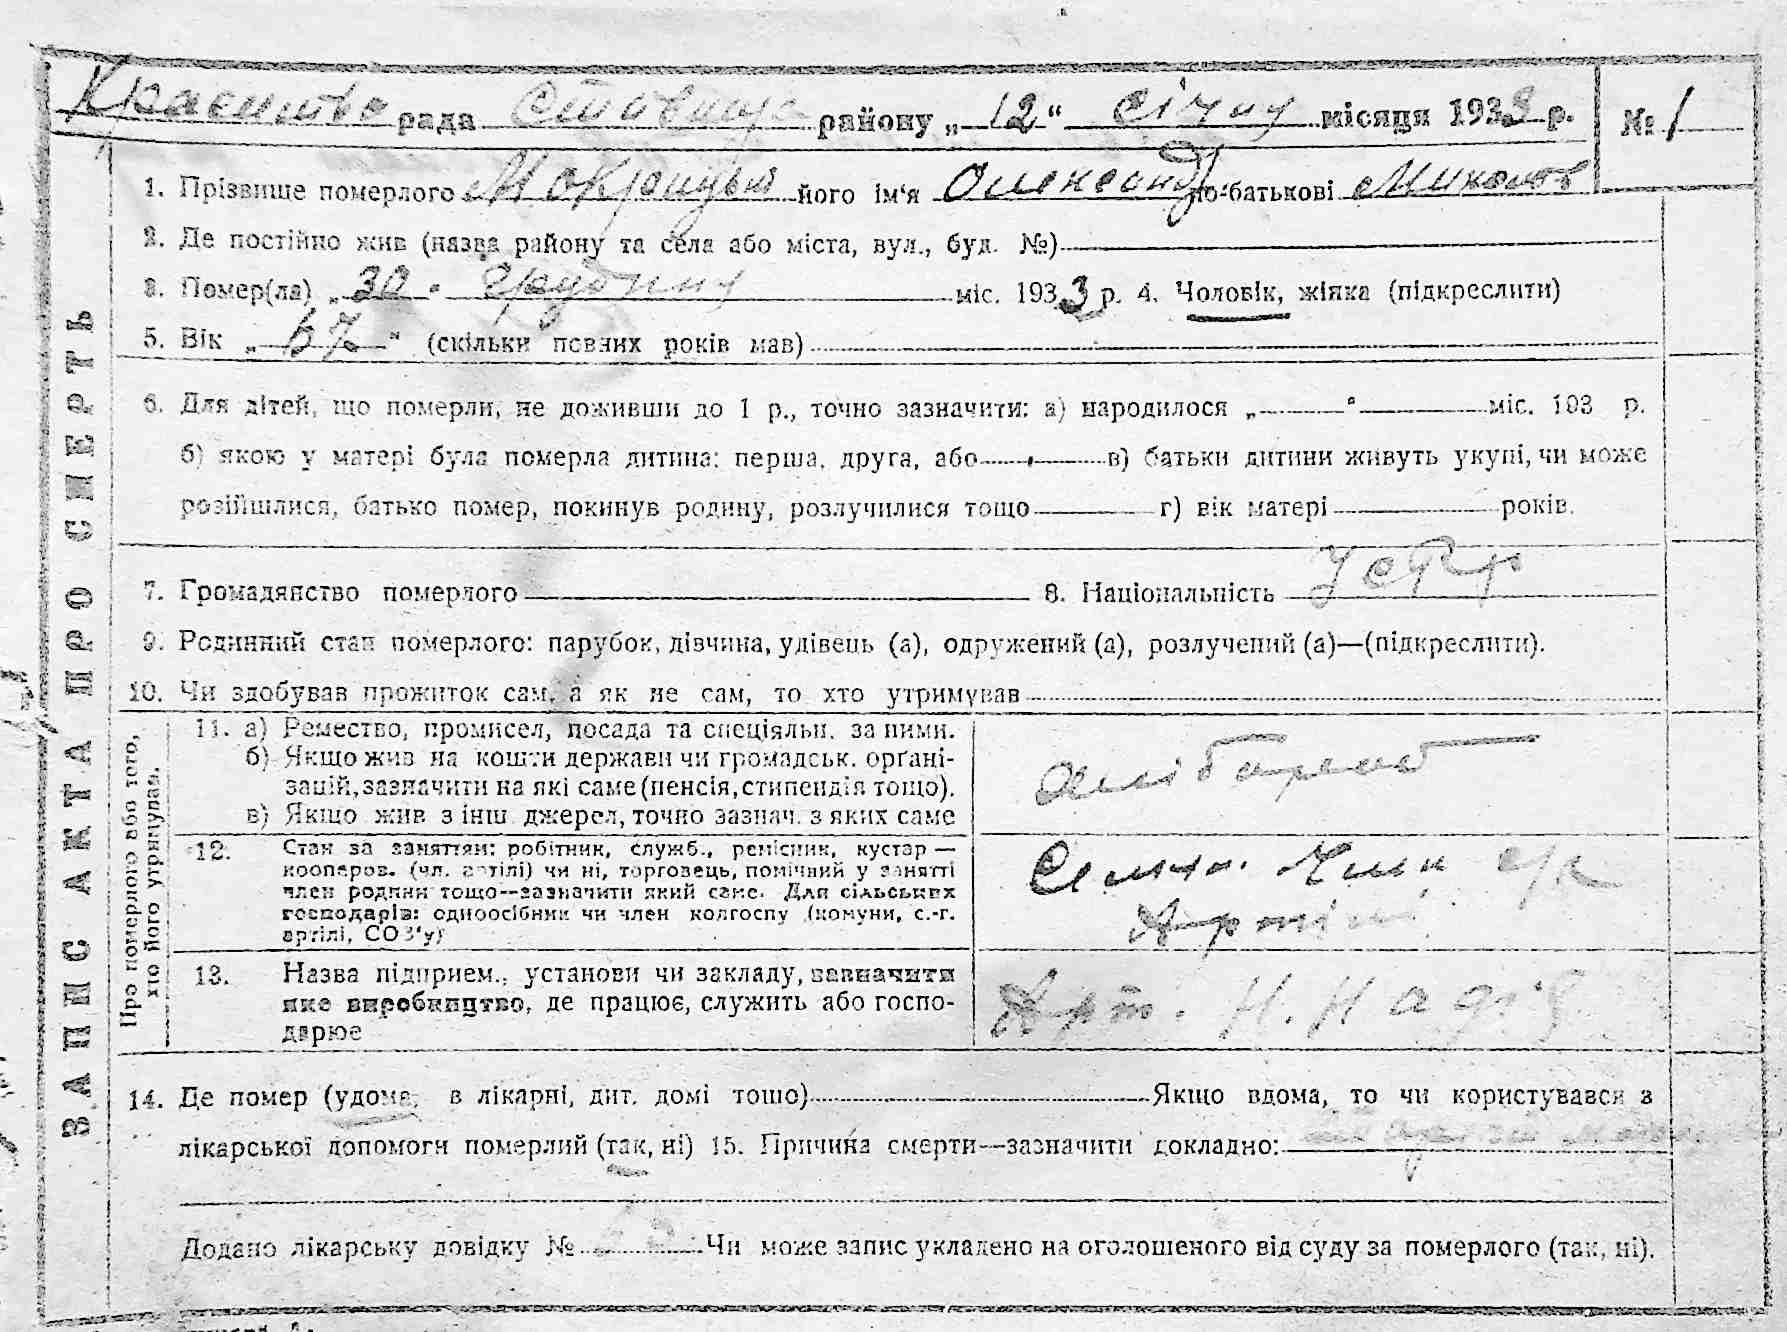 рада районну „12“ Січня місяця 1933 р. № 1
1. Прізвище померлого його ім'я Олександр по-батькові Миколов
2. Де постійно жив (назва району та села або міста, вул., буд. №)
3. Помер(ла) „30“ грудня міс. 1933 р. 4. Чоловік, жінка (підкреслити)
5. Вік „67“ (скільки повних років мав)
6. Для дітей, що померли, не доживши до 1 р., точно зазначити: а) народилося „ “ міс. 193 р.
б) якою у матері була померла дитина: перша, друга, або в) батьки дитини живуть укупі, чи може
розійшлися, батько помер, покинув родину, розлучилися тощо г) вік матері років.
7. Громадянство померлого 8. Національність УСРР
9. Родинний стан померлого: парубок, дівчина, удівець (а), одружений (а), розлучений (а)—(підкреслити).
10. Чи здобував прожиток сам, а як не сам, то хто утримував
ЗАПИС АКТА ПРО СМЕРТЬ
Про померлого або того, хто його утримував.
11. а) Ремество, промисел, посада та спеціяльн. за ними.
б) Якщо жив на кошти держави чи громадськ. орґані-
зацій, зазначити на які саме (пенсія, стипендія тощо).
в) Якщо жив з інш. джерел, точно зазнач. з яких саме
хлібороб
12. Стан за заняттям: робітник, служб., ремісник, кустар—
кооперов. (чл. артілі) чи ні, торговець, помічний у занятті
член родини тощо—зазначити який саме. Для сільських
господарів: одноосібник чи член колгоспу (комуни, с.-г.
артілі, СОЗ'у)
Член с/г
Артілі
13. Назва підприєм., установи чи закладу, зазначити
яке виробництво, де працює, служить або госпо-
дарює
Арт. Н. Надія
14. Де помер (удома, в лікарні, дит. домі тощо) Якщо вдома, то чи користувався з
лікарської допомоги померлий (так, ні) 15. Причина смерти—зазначити докладно:
Додано лікарську довідку № Чи може запис укладено на оголошеного від суду за померлого (так, ні).